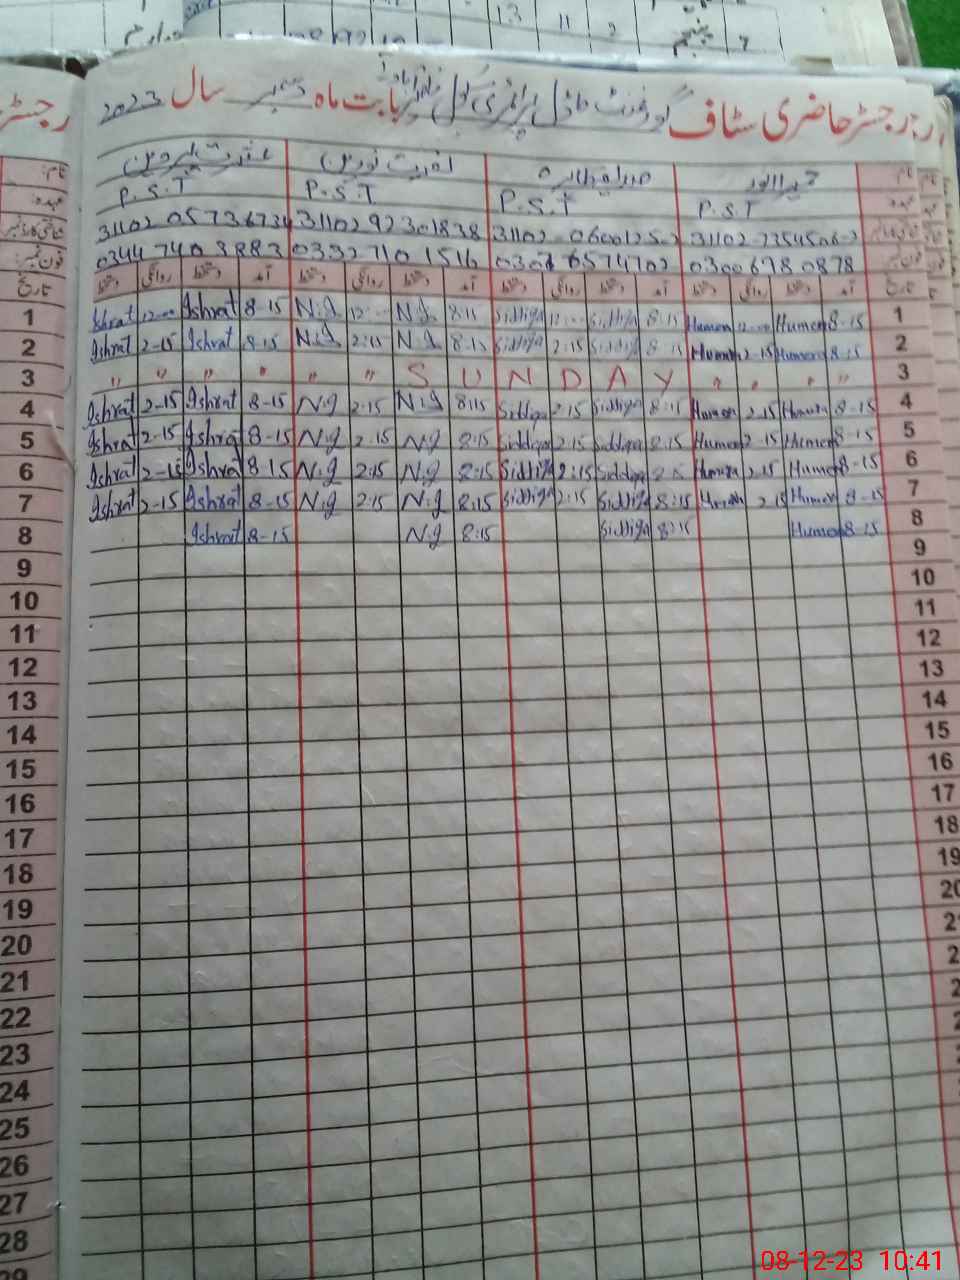 رجسٹر حاضری سٹاف گورنمنٹ ماڈل پرائمری سکول بابت ماہ دسمبر سال 2023
نام: حمیرا انور صدیقہ طاہرہ نصرت نورین عشرت پروین
عہدہ: P.S.T P.S.T P.S.T P.S.T
شناختی کارڈ نمبر 31102 9230183 8 31102 0573673 4
فون نمبر: 0300 6980878 0332 710 1516 0344 7403883
تاریخ آمد دستخط روانگی دستخط آمد دستخط روانگی دستخط آمد دستخط روانگی دستخط آمد دستخط روانگی دستخط تاریخ
1 Ishrat 12-00 Ishrat 8-15 N.g 12-00 N.g 8:15 Siddiqa 12-00 Siddiqa 8:15 Humera 12-00 Humera 8-15 1
2 Ishrat 2-15 Ishrat 8-15 N.g 2:15 N.g 8:15 Siddiqa 2:15 Siddiqa 8:15 Humera 2-15 Humera 8-15 2
3 " " " " " " S U N D A Y " " " " 3
4 Ishrat 2-15 Ishrat 8-15 N.g 2:15 N.g 8:15 Siddiqa 2:15 Siddiqa 8:15 Humera 2-15 Humera 8-15 4
5 Ishrat 2-15 Ishrat 8-15 N.g 2:15 N.g 8:15 Siddiqa 2:15 Siddiqa 8:15 Humera 2-15 Humera 8-15 5
6 Ishrat 2-15 Ishrat 8-15 N.g 2:15 N.g 8:15 Siddiqa 2:15 Siddiqa 8:15 Humera 2-15 Humera 8-15 6
7 Ishrat 2-15 Ishrat 8-15 N.g 2:15 N.g 8:15 Siddiqa 2:15 Siddiqa 8:15 Humera 2-15 Humera 8-15 7
8 Ishrat 8-15 N.g 8:15 Siddiqa 8:15 Humera 8-15 8
9 9
10 10
11 11
12 12
13 13
14 14
15 15
16 16
17 17
18 18
19 19
20 20
21
22
23
24
25
26
27
28
29
08-12-23 10:41